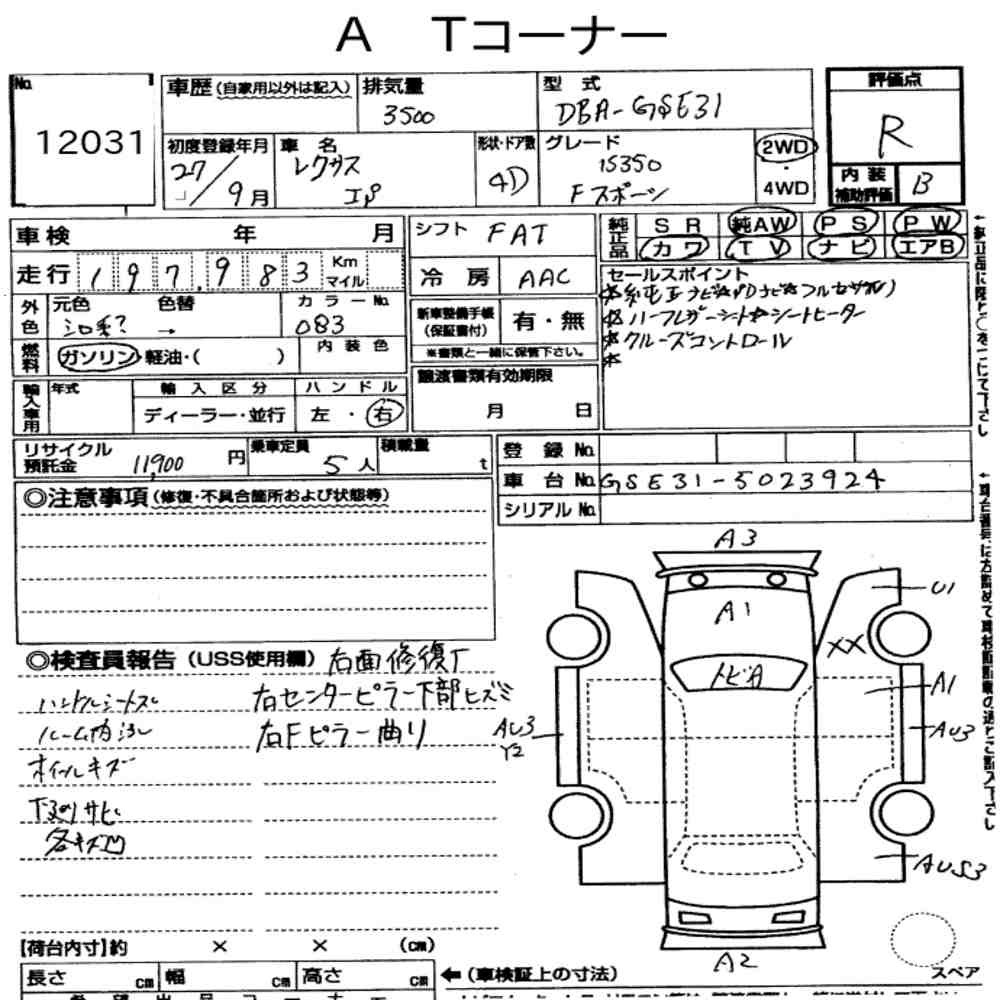 A Tコーナー
No.
12031
車歴 (自家用以外は記入)
排気量
3500
型式
DBA-GSE31
評価点
R
初度登録年月
27/9月
車名
レクサス
IS
形状・ドア数
4D
グレード
IS350
Fスポーツ
2WD
・
4WD
内装
補助評価
B
車検 年 月
シフト FAT
純正品
SR 純AW PS PW
カワ TV ナビ エアB
走行 197,983 Km
マイル
冷房 AAC
セールスポイント
外色
元色 色替
カラーNo.
083
新車整備手帳
(保証書付)
有・無
※書類と一緒に保管下さい。
*ハーフレザーシート*シートヒーター
*クルーズコントロール
*
燃料
ガソリン・軽油・( )
内装色
輸入車用
年式
輸入区分
ディーラー・並行
ハンドル
左・右
譲渡書類有効期限
月 日
リサイクル
預託金
11,900 円
乗車定員
5人
積載量
t
登録No.
車台No. GSE31-5023924
シリアルNo.
◎注意事項 (修復・不具合箇所および状態等)
◎検査員報告 (USS使用欄)
右面修復丁
ハンドルシートスレ
右センターピラー下部ヒズミ
ルーム内汚レ
右Fピラー曲り
ホイールキズ
下廻りサビ
各キズ凹
A3
A1
U1
XX
トビA
A1
AU3
Y2
AU3
AUS3
A2
スペア
【荷台内寸】約 × × (cm)
長さ cm 幅 cm 高さ cm
←(車検証上の寸法)